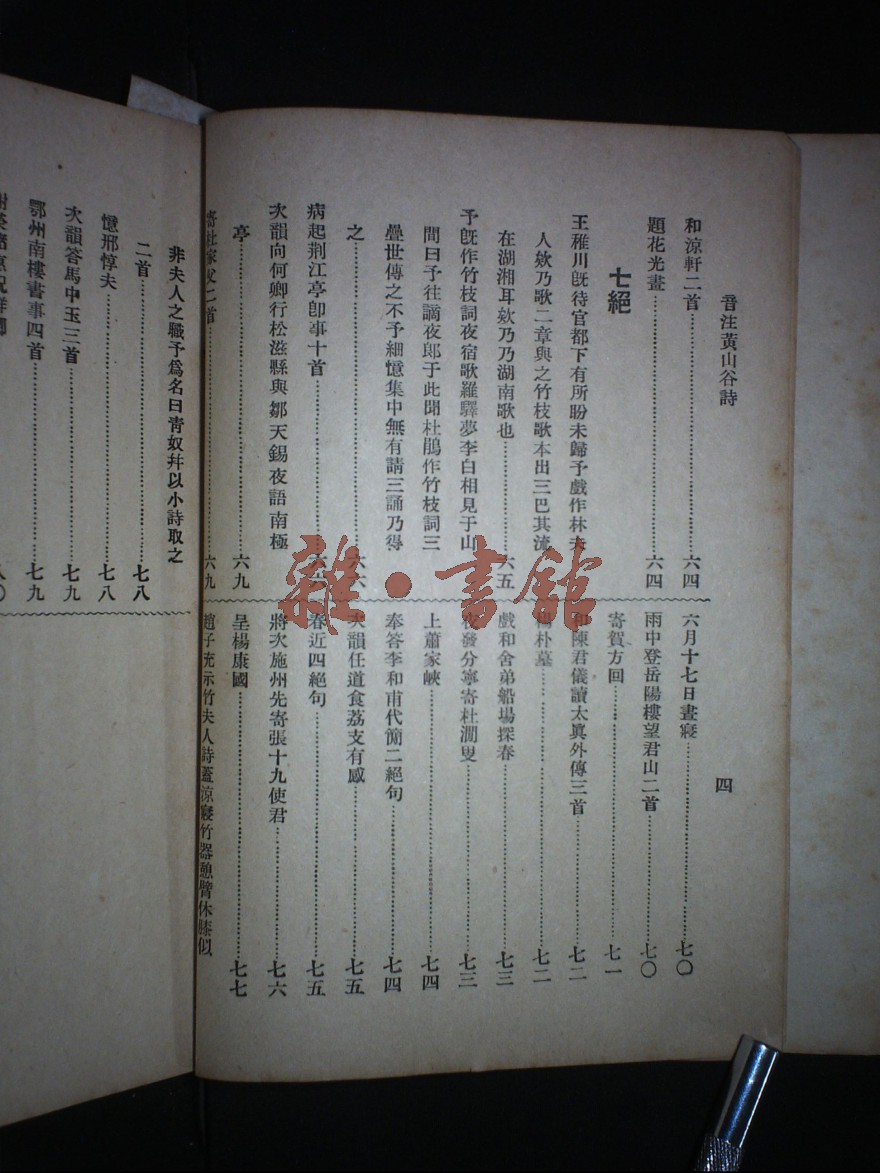 音注黃山谷詩
四
和涼軒二首……六四
題花光畫……六四
七絕
王稚川旣待官都下有所盼未歸予戲作林夫
人欸乃歌二章與之竹枝歌本出三巴其流
在湖湘耳欸乃乃湖南歌也……六五
予旣作竹枝詞夜宿歌羅驛夢李白相見于山
間曰予往謫夜郎于此聞杜鵑作竹枝詞三
疊世傳之不予細憶集中無有請三誦乃得
之……六六
病起荆江亭卽事十首……六六
次韻向何卿行松滋縣與鄒天錫夜語南極
亭……六九
寄杜家父二首……六九
六月十七日晝寢……七〇
雨中登岳陽樓望君山二首……七〇
寄賀方回……七一
和陳君儀讀太眞外傳三首……七二
朴墓……七二
戲和舍弟船場探春……七三
夜發分寧寄杜澗叟……七三
上蕭家峽……七四
奉答李和甫代簡二絕句……七四
次韻任道食荔支有感……七五
春近四絕句……七五
將次施州先寄張十九使君……七六
呈楊康國……七七
趙子充示竹夫人詩蓋涼寢竹器憩臂休膝似
非夫人之職予爲名曰青奴幷以小詩取之
二首……七八
憶邢惇夫……七八
次韻答馬中玉三首……七九
鄂州南樓書事四首……七九
八〇
雜·書館